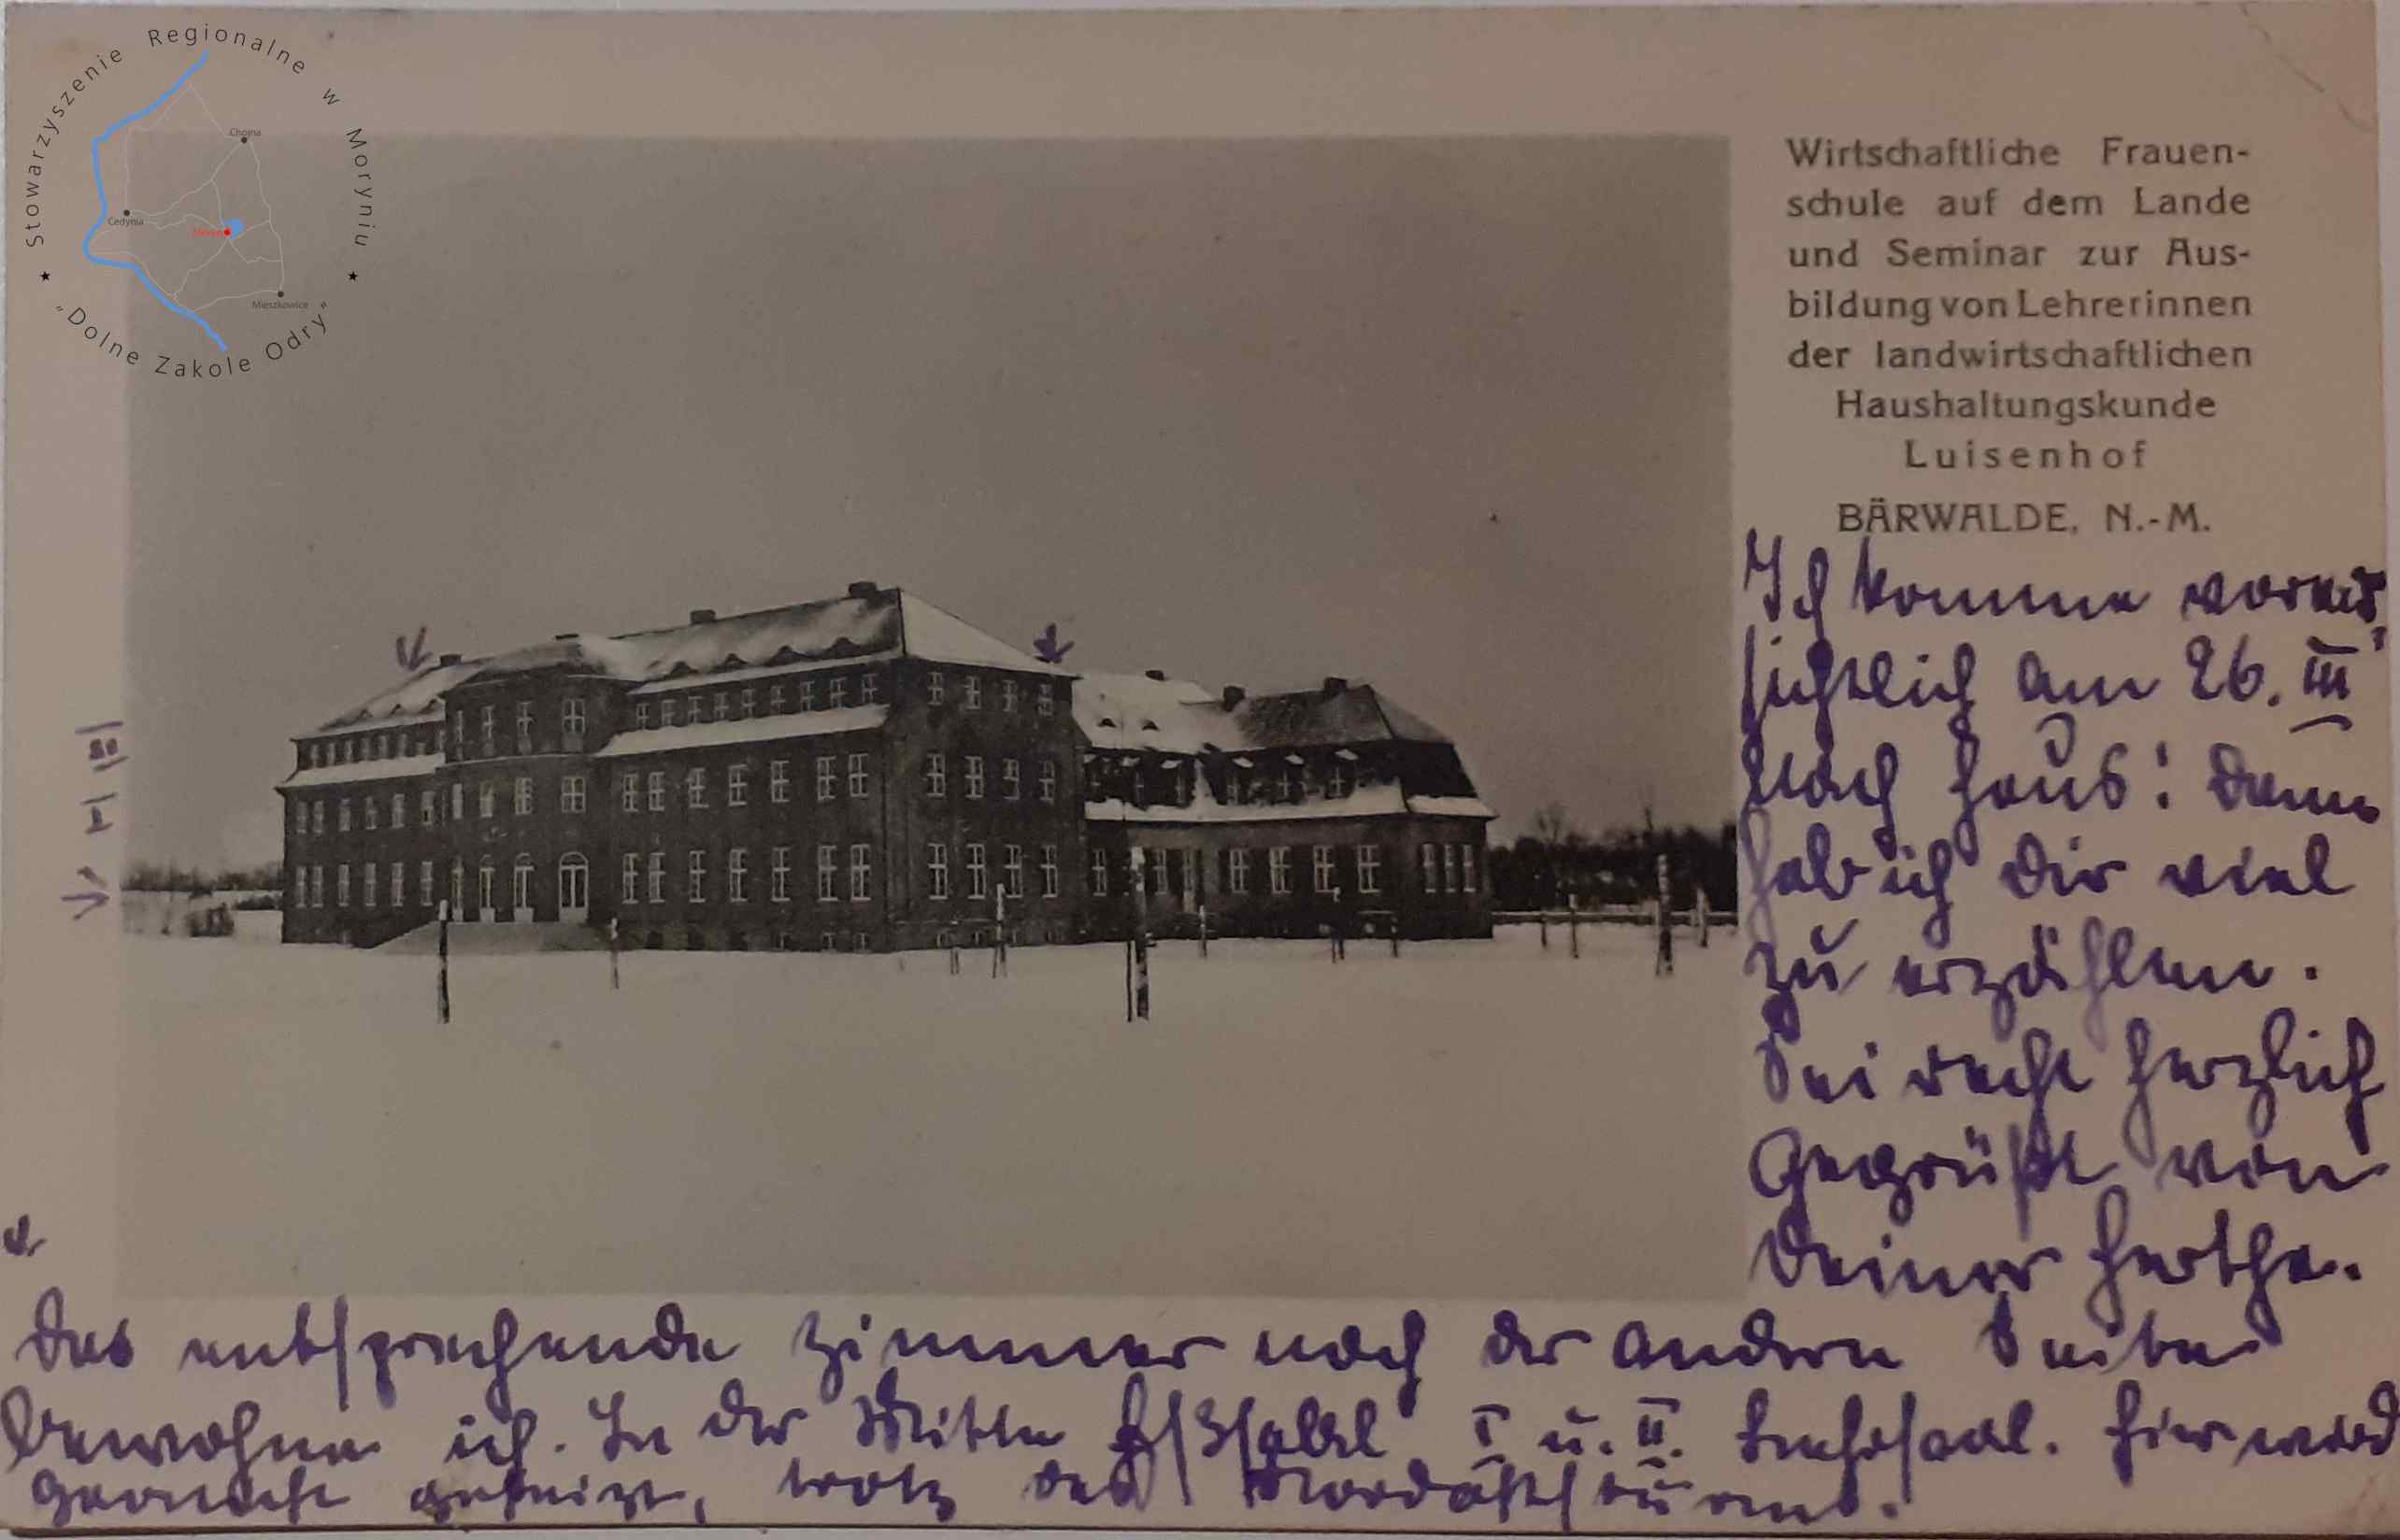 Stowarzyszenie Regionalne w Moryniu
"Dolne Zakole Odry"
Chojna
Cedynia
Moryń
Mieszkowice
Wirtschaftliche Frauen-
schule auf dem Lande
und Seminar zur Aus-
bildung von Lehrerinnen
der landwirtschaftlichen
Haushaltungskunde
Luisenhof
BÄRWALDE, N.-M.
Ich komme voraus
sichtlich am 26. III
nach Haus! Dann
hab ich Dir viel
zu erzählen.
Sei recht herzlich
gegrüßt von
Deiner Herthe.
Das entsprechende Zimmer nach der andern Seite
bewohne ich. In der Mitte I u. II. Lehrsaal. Hier wird
geheizt, trotz des